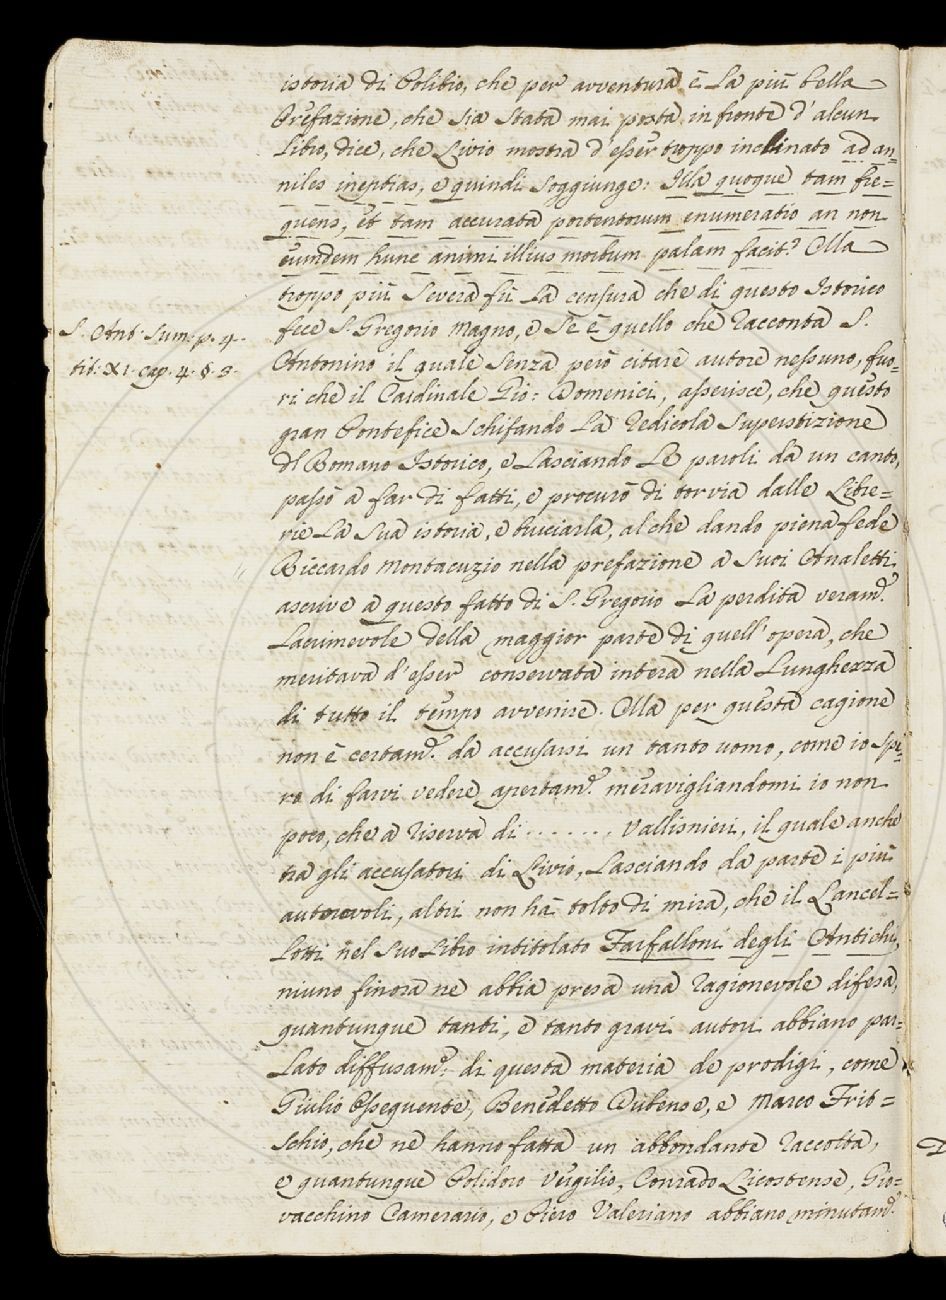 istoria di Polibio, che per avventura è la più bella
Prefazione, che sia stata mai posta in fronte d'alcun
Libro, dice, che Livio mostra d'esser troppo inclinato ad an=
niles ineptias, e quindi soggiunge: Illa quoque tam fre=
quens, et tam accurata portentorum enumeratio an non
eumdem hunc animi illius morbum palam facit? Ma
troppo più severa fù la censura che di questo Istorico
fece S. Gregorio Magno, e se è quello che racconta S.
S. Ant: Sum: p. 4.
tit: XI. cap. 4. §. 8.
Antonino il quale senza però citare autore nessuno, fuo=
ri che il Cardinale Gio: Domenici, asserisce, che questo
gran Pontefice schifando la redicola superstizione
dl Romano Istorico, e lasciando le paroli da un canto,
passò a far di fatti, e procurò di torvia dalle Libre=
rie la sua istoria, e bruciarla, al che dando piena fede
Riccardo Montacuzio nella prefazione a suoi Analetti
ascrive a questo fatto di S. Gregorio la perdita veram.e
lacrimevole della maggior parte di quell'opera, che
meritava d'esser conservata intera nella lunghezza
di tutto il tempo avvenire. Ma per questa cagione
non è certam.e da accusarsi un tanto uomo, come io spe=
ro di farvi vedere apertam.e meravigliandomi io non
poco, che a riserva di ....... Vallisnieri, il quale anche
tra gli accusatori di Livio, lasciando da parte i più
autorevoli, altri non hà tolto di mira, che il Lancel=
lotti nel suo Libro intitolato Farfalloni degli Antichi,
niuno finora ne abbia presa una ragionevole difesa,
quantunque tanti, e tanto gravi autori abbiano par=
lato diffusam.e di questa materia de prodigi, come
Giulio Ossequente, Benedetto Dubense, e Marco Frit=
schio, che ne hanno fatta un abbondante raccolta,
e quantunque Polidoro Vergilio, Conrado Licostense, Gio=
vacchino Camerario, e Piero Valeriano abbiano minutam.e